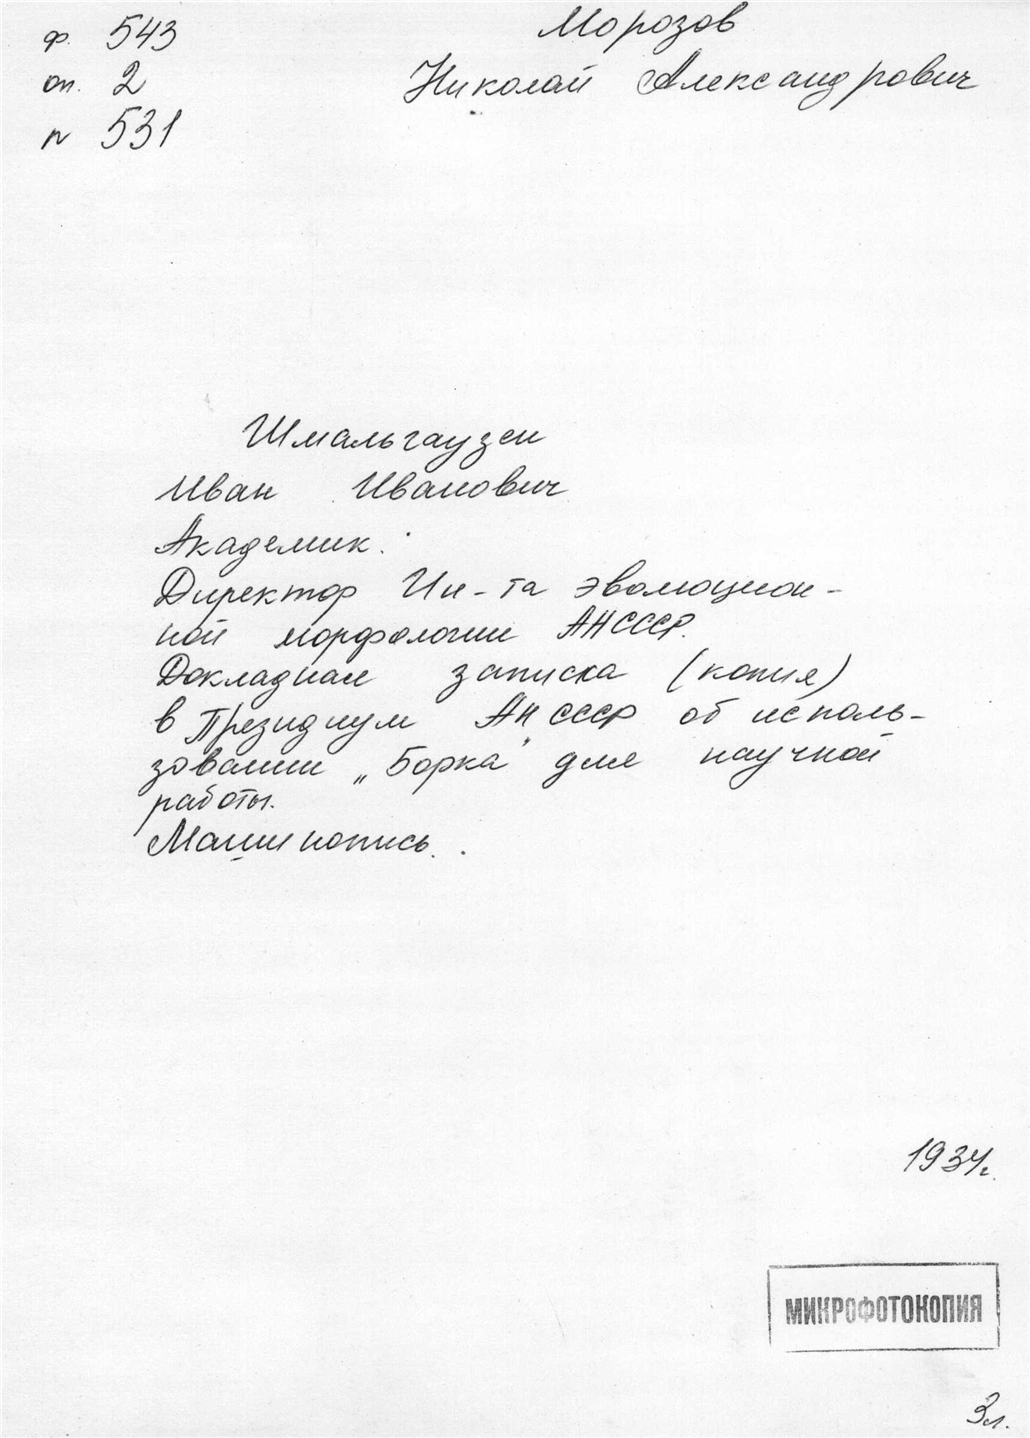 ф. 543
оп. 2
№ 531
Морозов
Николай Александрович
Шмальгаузен
Иван Иванович
Академик.
Директор Ин-та эволюцион-
ной морфологии АН СССР.
Докладная записка (копия)
в Президиум АН СССР об исполь-
зовании „Борка" для научной
работы.
Машинопись.
1934г.
МИКРОФОТОКОПИЯ
3л.